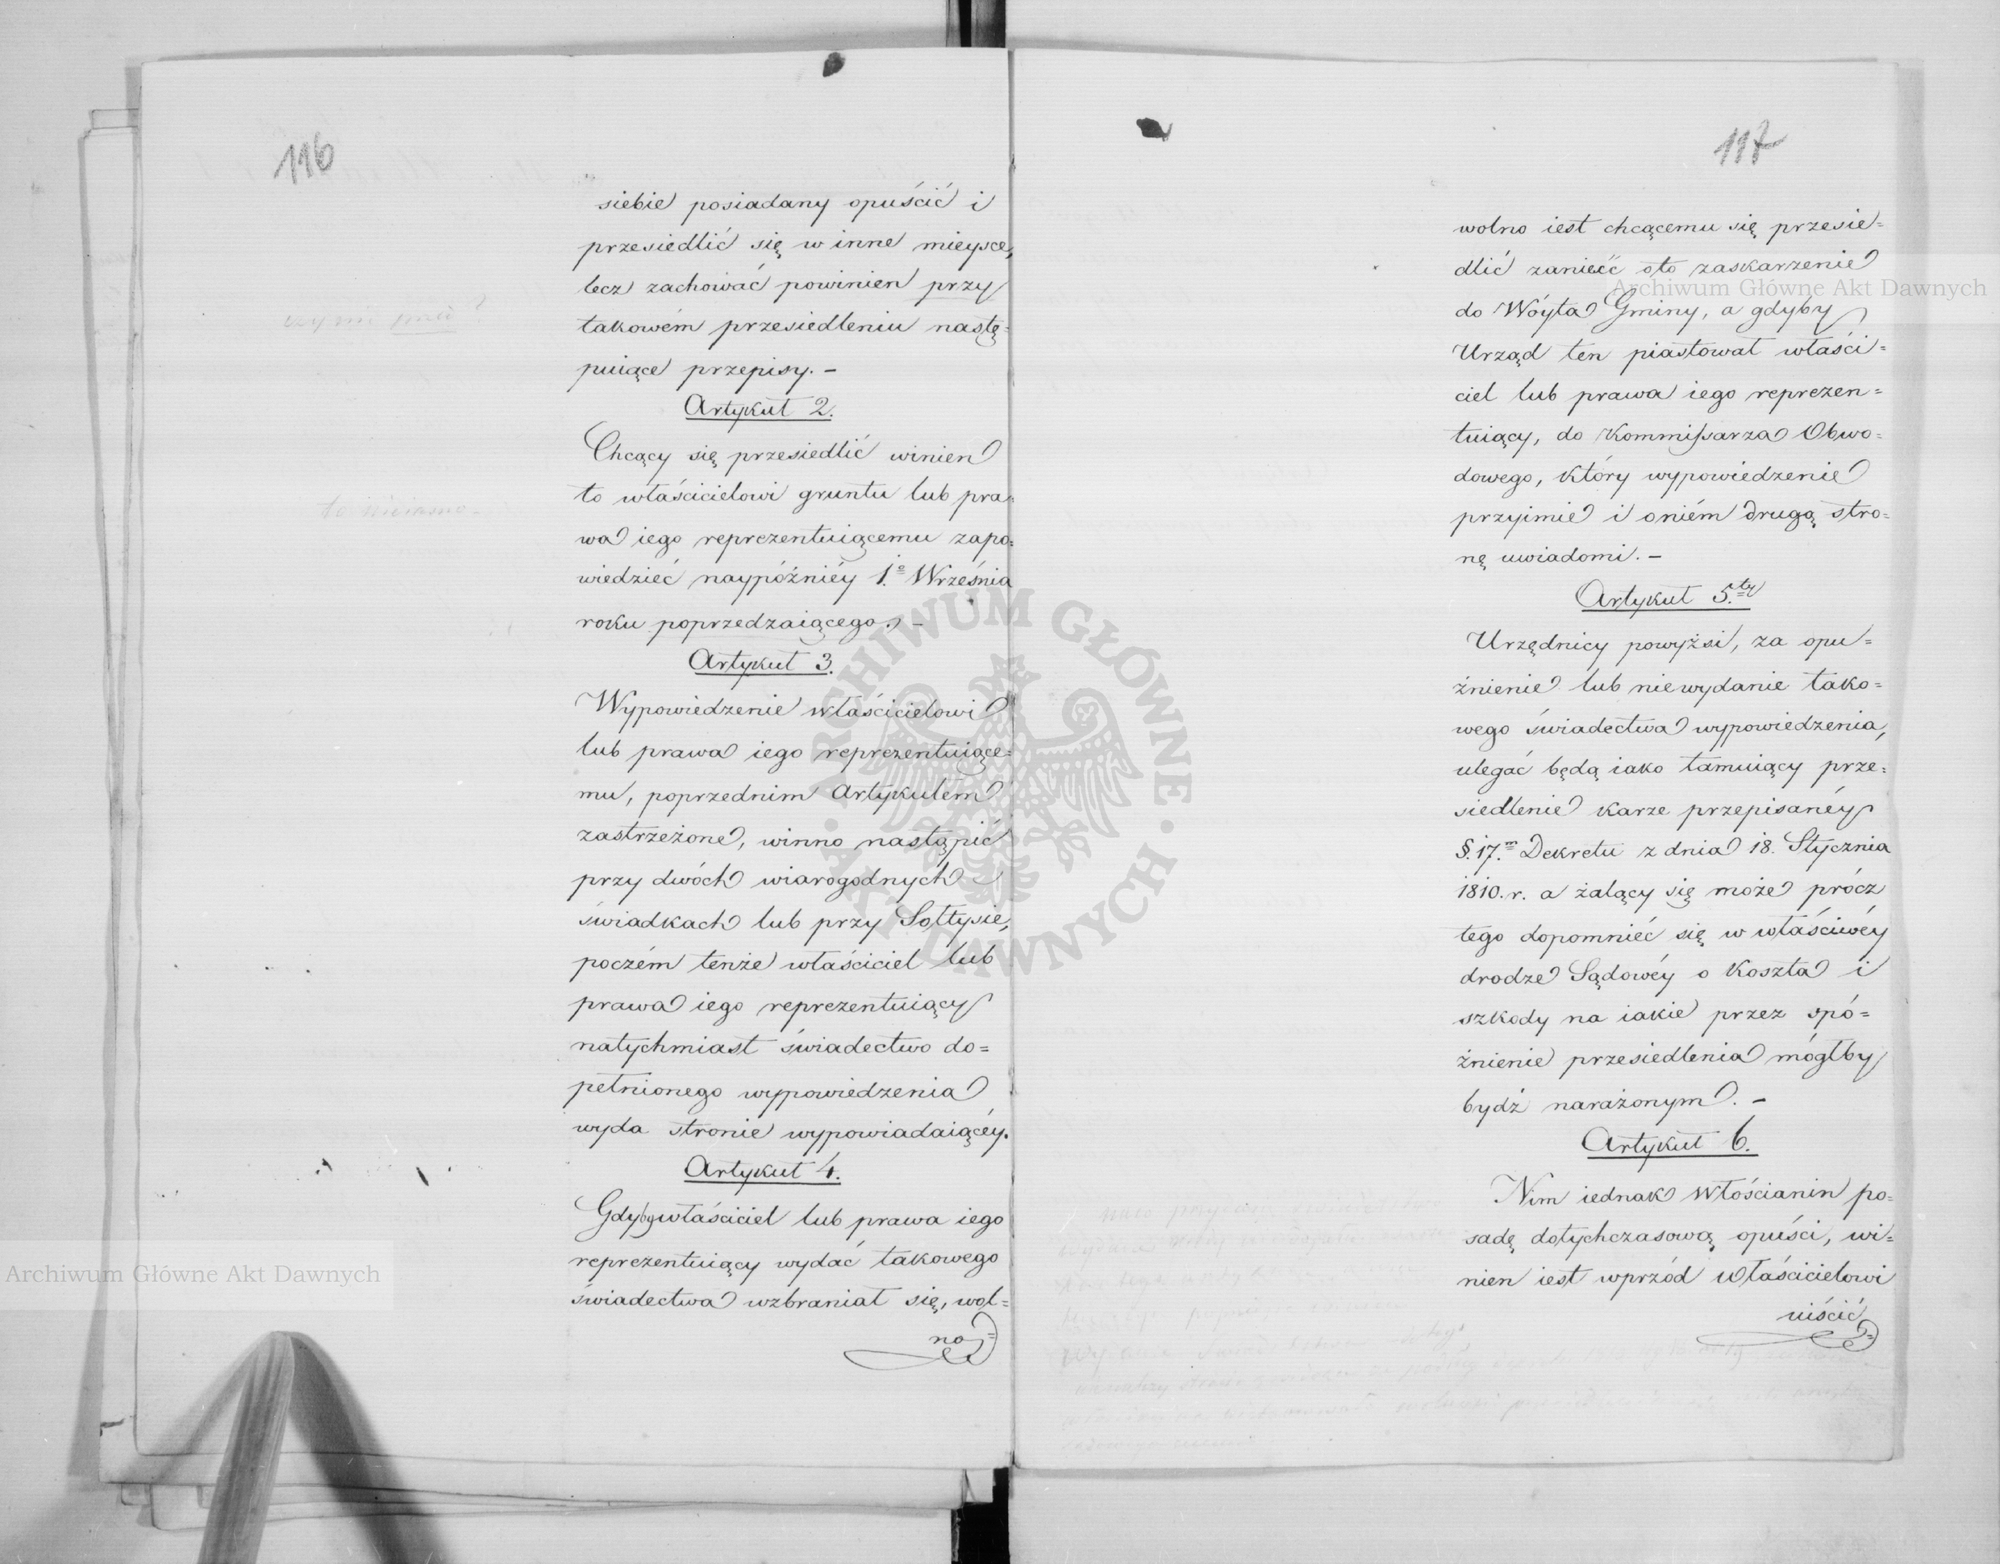 116
siebie posiadany opuścić i
przesiedlić się w inne mieysce,
lecz zachować powinien przy
takowém przesiedleniu nastę=
puiące przepisy. —
Artykuł 2.
Chcący się przesiedlić winien
to właścicielowi gruntu lub pra=
wa iego reprezentuiącemu zapo=
wiedzieć naypóźniéy 1.º Września
roku poprzedzaiącego. —
Artykuł 3.
Wypowiedzenie właścicielowi
lub prawa iego reprezentuiące=
mu, poprzednim Artykułem
zastrzeżone, winno nastąpić
przy dwóch wiarogodnych
świadkach lub przy Sołtysie,
poczém tenże właściciel lub
prawa iego reprezentuiący
natychmiast świadectwo do=
pełnionego wypowiedzenia
wyda stronie wypowiadaiącéy.
Artykuł 4.
Gdyby właściciel lub prawa iego
reprezentuiący wydać takowego
świadectwa wzbraniał się, wol=
no=
117
wolno iest chcącemu się przesie=
dlić zanieść o to zaskarzenie
do Wóyta Gminy, a gdyby
Urząd ten piastował właści=
ciel lub prawa iego reprezen=
tuiący, do Kommissarza Obwo=
dowego, który wypowiedzenie
przyimie i o niém drugą stro=
nę uwiadomi. —
Artykuł 5.ty
Urzędnicy powyżsi, za opu=
źnienie lub niewydanie tako=
wego świadectwa wypowiedzenia,
ulegać będą iako tamuiący prze=
siedlenie karze przepisanéy
§. 17.m Dekretu z dnia 18. Stycznia
1810. r. a żalący się może prócz
tego dopomnieć się w właściwéy
drodze Sądowéy o Koszta i
szkody na iakie przez spó=
źnienie przesiedlenia mógłby
bydź narażonym. —
Artykuł 6.
Nim iednak Włościanin po=
sadę dotychczasową opuści, wi=
nien iest wprzód Właścicielowi
uiścić
Archiwum Główne Akt Dawnych
Archiwum Główne Akt Dawnych
ARCHIWUM GŁÓWNE · AKT DAWNYCH ·